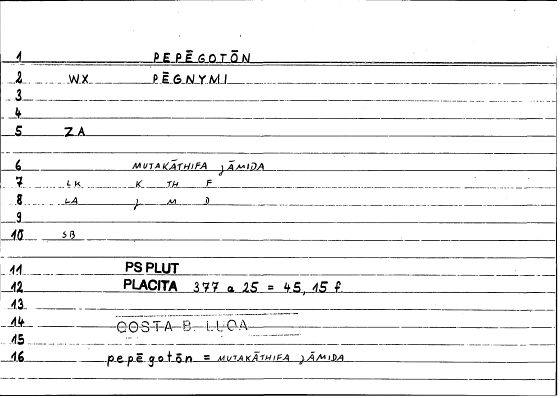 1 PEPĒGOTŌN
2 WX PĒGNYMI
3
4
5 ZA
6 MUTAKĀTHIFA JĀMIDA
7 LK K TH F
8 LA J M D
9
10 SB
11 PS PLUT
12 PLACITA 377 a 25 = 45, 15 f.
13
14 COSTA B. LUCA
15
16 pepēgotōn = MUTAKĀTHIFA JĀMIDA